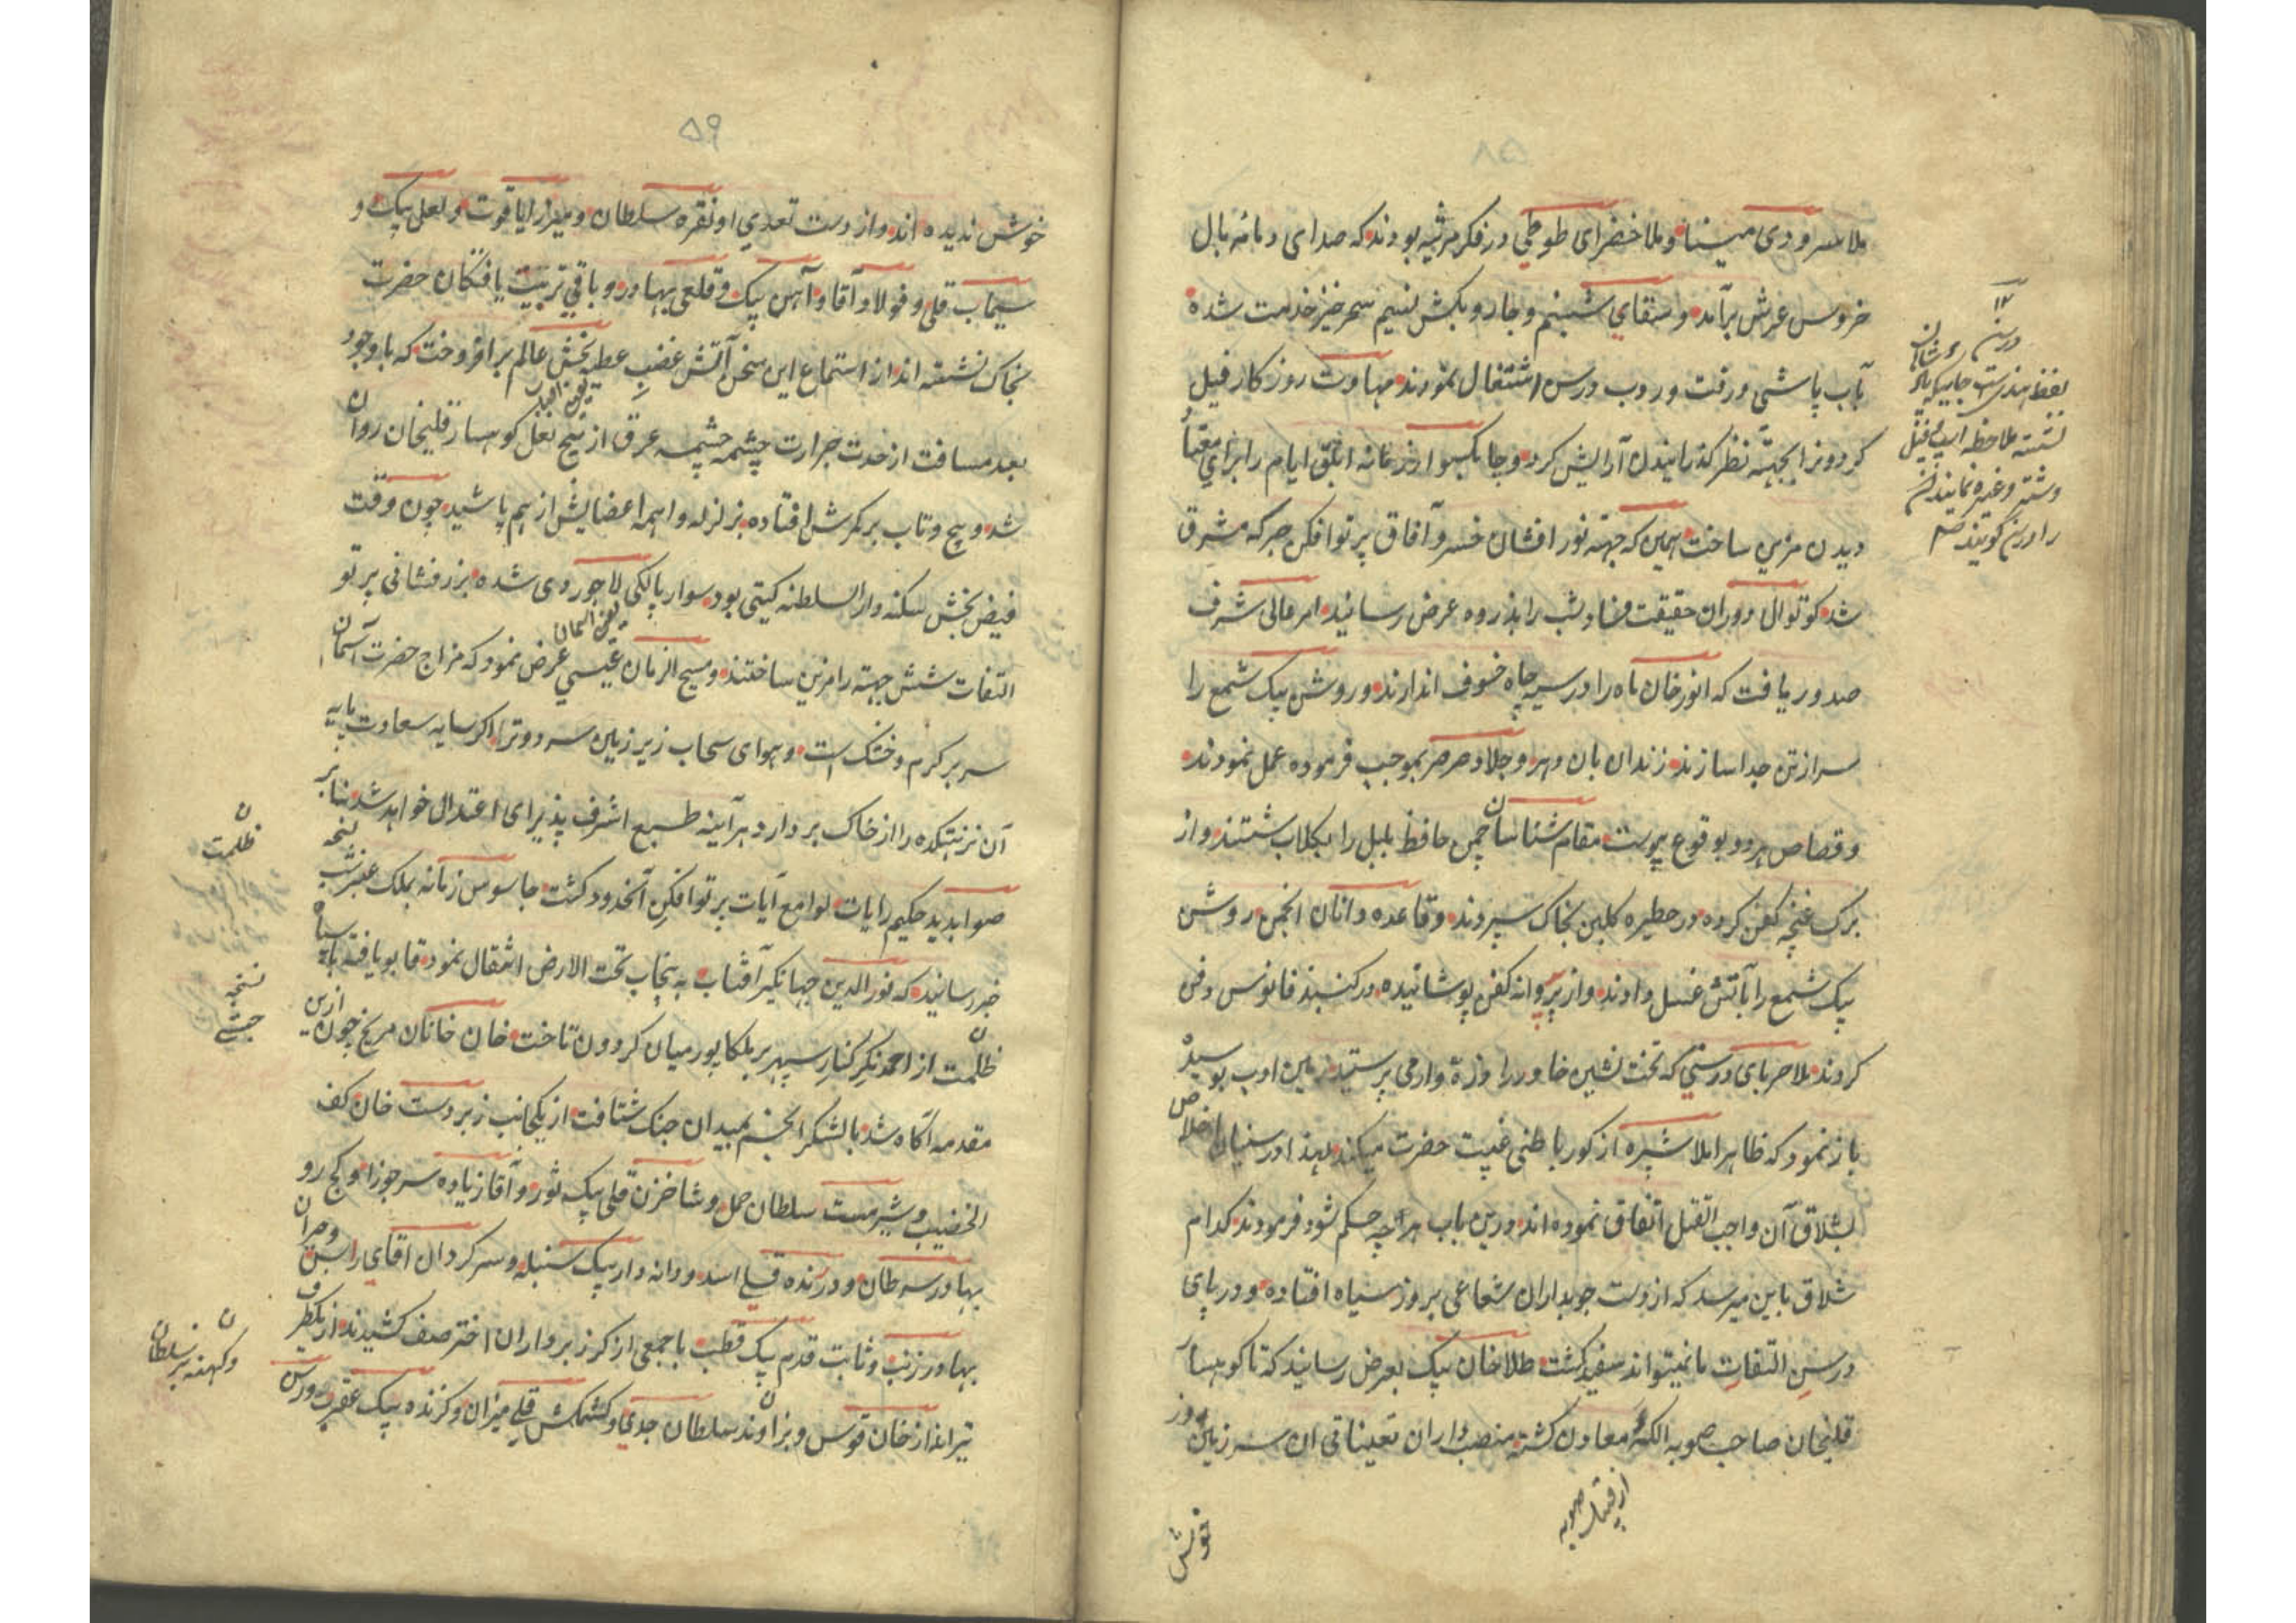 ملا سرودی مینا و ملا خضرای طوطی در فکر مرثیه بودند که صدای دمامه بال
خروس عرش برآمد و سقای شبنم و جاروبکش نسیم سحرخیز خدمت شده
بآب پاشی و رفت و روب درس اشتغال نمودند مهاوت روزگار فیل
کردون را بجهته نظر گذرانیدن آرایش کرد و چابکسوار زمانه ابلق ایام را برای
دیدن مزین ساخت همین که جهته نور افشان خسرو آفاق پرتو افکن جرکه مشرق
شد کوتوال دوران حقیقت فساد شب را بذروه عرض رسانید امر عالی شرف
صدور یافت که انور خان ماه را در سیه چاه خسوف اندازند و روشن بیک شمع را
سر از تن جدا سازند زندان بان دهر و جلاد صرصر بموجب فرموده عمل نمودند
و قصاص هر دو بوقوع پیوست مقام شناسان چمن حافظ بلبل را بگلاب شستند و از
برک غنچه کفن کرده در حظیره کلبن بخاک سپردند و قاعده دانان انجمن روشن
بیک شمع را بآتش غسل دادند و از پر پروانه کفن پوشانیده در کنبد فانوس دفن
کردند ملا حربای درستی که تخت نشین خاور را ذره وار می پرستید زمین ادب بوسیده
باز نمود که ظاهرا ملا شپره از کور باطنی غیبت حضرت میکند لهذا در سنیان با خلاص
بشلاق آن واجب القتل اتفاق نموده اند درین باب هر چه حکم شود فرمودند کدام
شلاق باین میرسد که از دست چوبداران شعاعی بروز سیاه افتاده و در پای
درسن التفات ما نمیتواند سفید کشت طلا خان بیک بعرض رسانید که تا کوهسار
قلیخان صاحب صوبه الکه معادن کشته منصبداران تعیناتی ان سرزمین روز
خوش
۱۲
درسن
لفظ هندیست جاییکه
نشسته ملاحظه فیل
و شتر و غیره نمایند آن
را درسن کویند
۵۹
خوش ندیده اند و از دست تعدی او نقره سلطان و میرزا یاقوت و لعل بیک و
سیماب قلی و فولاد آقا و آهن بیک و قلعی بهادر و باقی تربیت یافتکان حضرت
بخاک نشسته اند از استماع این سخن آتش غضب عطیه بخش عالم برافروخت که باوجود
بعد مسافت از حدت حرارت چشمه چشمه عرق از بیخ بغل کوهسار قلیخان روان
شد و پیچ و تاب بر کمرش افتاده بزلزله واهمه اعضایش از هم پاشید چون وقت
فیض بخش سکنه دار السلطنه کیتی بود سوار پالکی لاجوردی شده بزرفشانی پرتو
التفات شش جهته را مزین ساختند و مسیح الزمان عیسی عرض نمود که مزاج حضرت آسمان
سریر کرم و خشک است و هوای سحاب زیر زمین سرد و تر اکر سایه سعادت پایه
آن نزهتکده را از خاک بردارد هر آینه طبع اشرف پذیرای اعتدال خواهد شد بنابر
صوابدید حکیم رایات لوامع آیات پرتو افکن آنحدود کشت جاسوس زمانه بملک عنبر شب
خبر رسانید که نور الدین جهانکیر آفتاب به پنجاب تحت الارض انتقال نمود قابو یافته با سپاه
ظلمت از احمدنکر کنار سپهر بر بلکاپور میان کردون تاخت خان خانان مریخ چون ازین
مقدمه آکاه شد با لشکر انجم بمیدان جنک شتافت از یکجانب زبردست خان کف
الخضیب و شیرمست سلطان حمل و شاخزن قلی بیک ثور و آقا زیاده سر جوزا و کج رو
بهادر سرطان و درنده قلی اسد و دانه دار بیک سنبله و سرکردان آقای راس
بهادر ذنب و ثابت قدم بیک قطب با جمعی از کرز برداران اختر صف کشیدند از یکطرف
تیرانداز خان قوس و بزاوند سلطان جدی و کشمکش قلی میزان و کزنده بیک عقرب
ظلمت
نسخه